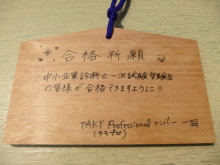 合格祈願
中小企業診断士一次試験受験生
の皆様が合格できますように!!
TAKY Professional メンバー 一同
(タキプロ)